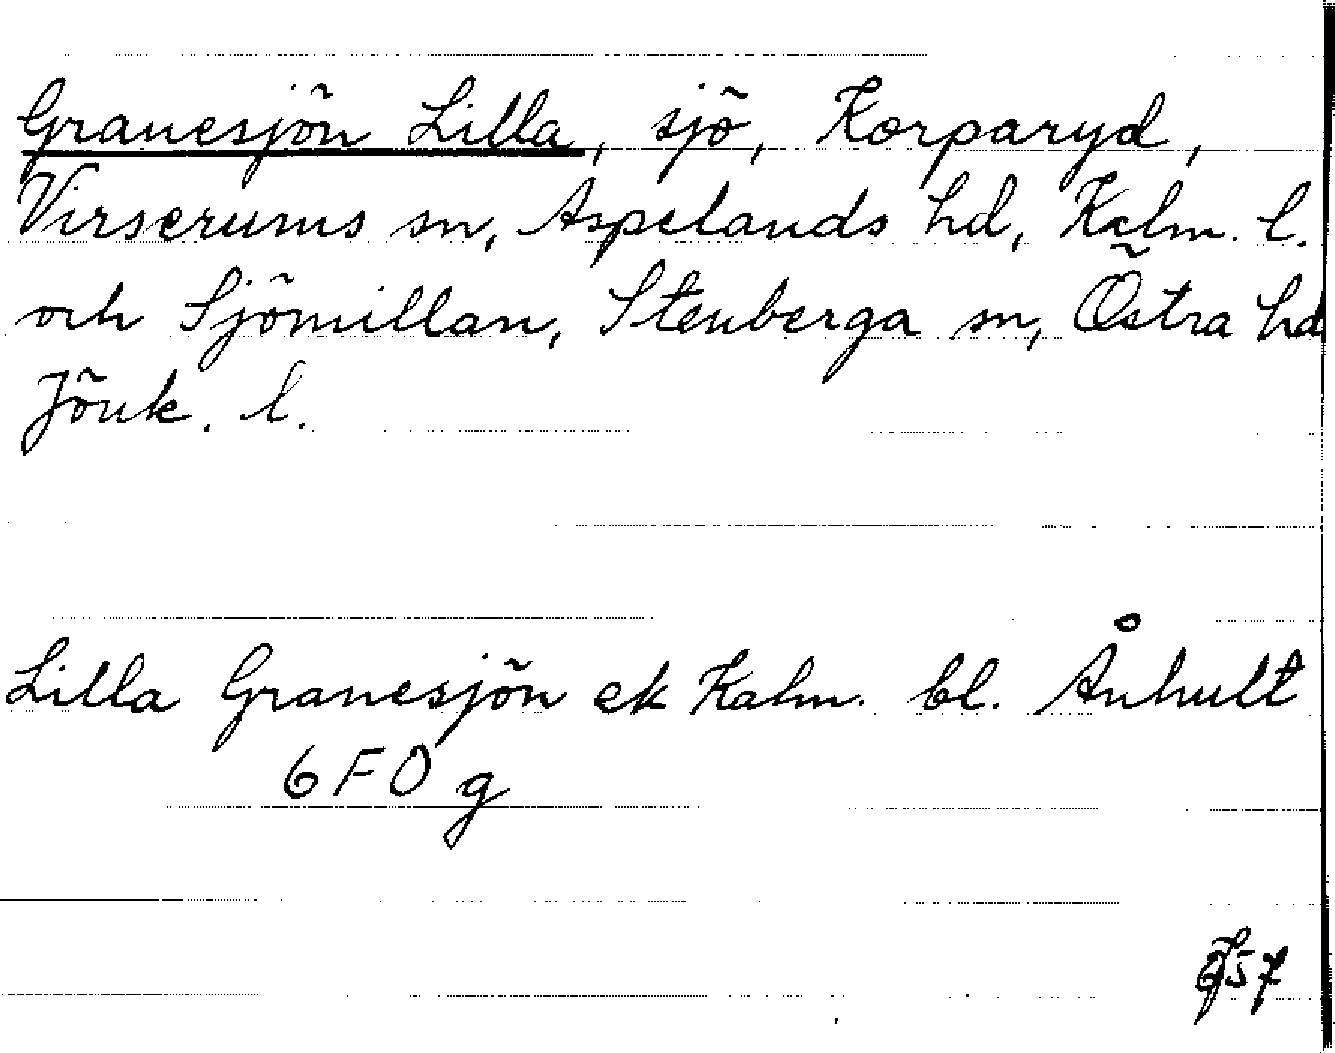 Granesjön Lilla, sjö, Korparyd,
Virserums sn, Aspelands hd, Kalm. l.
och Sjömillan, Stenberga sn, Östra hd
Jönk. l.
Lilla Granesjön ek Kalm. bl. Ånhult
6 F O g
57